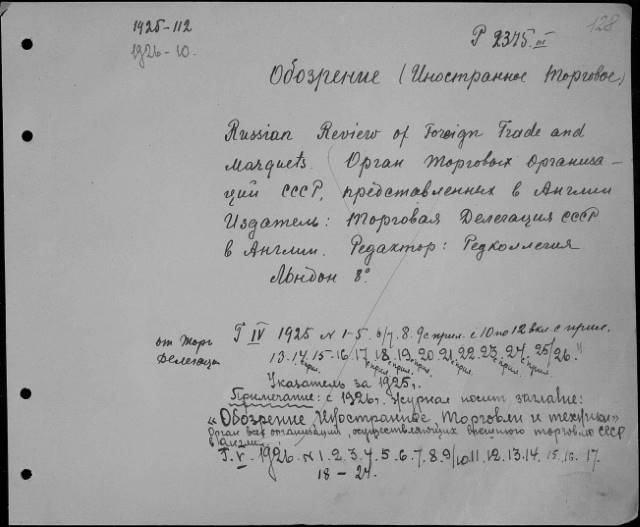 1925-112
1926-10.
Р 2375 III
128
Обозрение (Иностранное Торговое)
Russian Review of Foreign Trade and
Marquets. Орган Торговых Организа-
ций СССР, представленных в Англии
Издатель: Торговая Делегация СССР
в Англии. Редактор: Редколлегия
Лондон 8°
от Торг
Делегации
Г IV 1925 N 1-5. 6/7. 8. 9 с прил. с 10 по 12 вкл. с прил.
13. 14. 15. 16. 17. 18. 19. 20. 21. 22. 23. 24. 25/26.
с прил. с прил. с прил. с прил. с прил.
Указатель за 1925 г.
Примечание: с 1926 г. журнал носит заглавие:
«Обозрение Иностранное Торговли и техники»
Орган всех организаций, осуществляющих внешнюю торговлю СССР
в Англии
Г. V. 1926. N 1. 2. 3. 4. 5. 6. 7. 8. 9/10 11. 12. 13. 14. 15. 16. 17.
18 – 24.